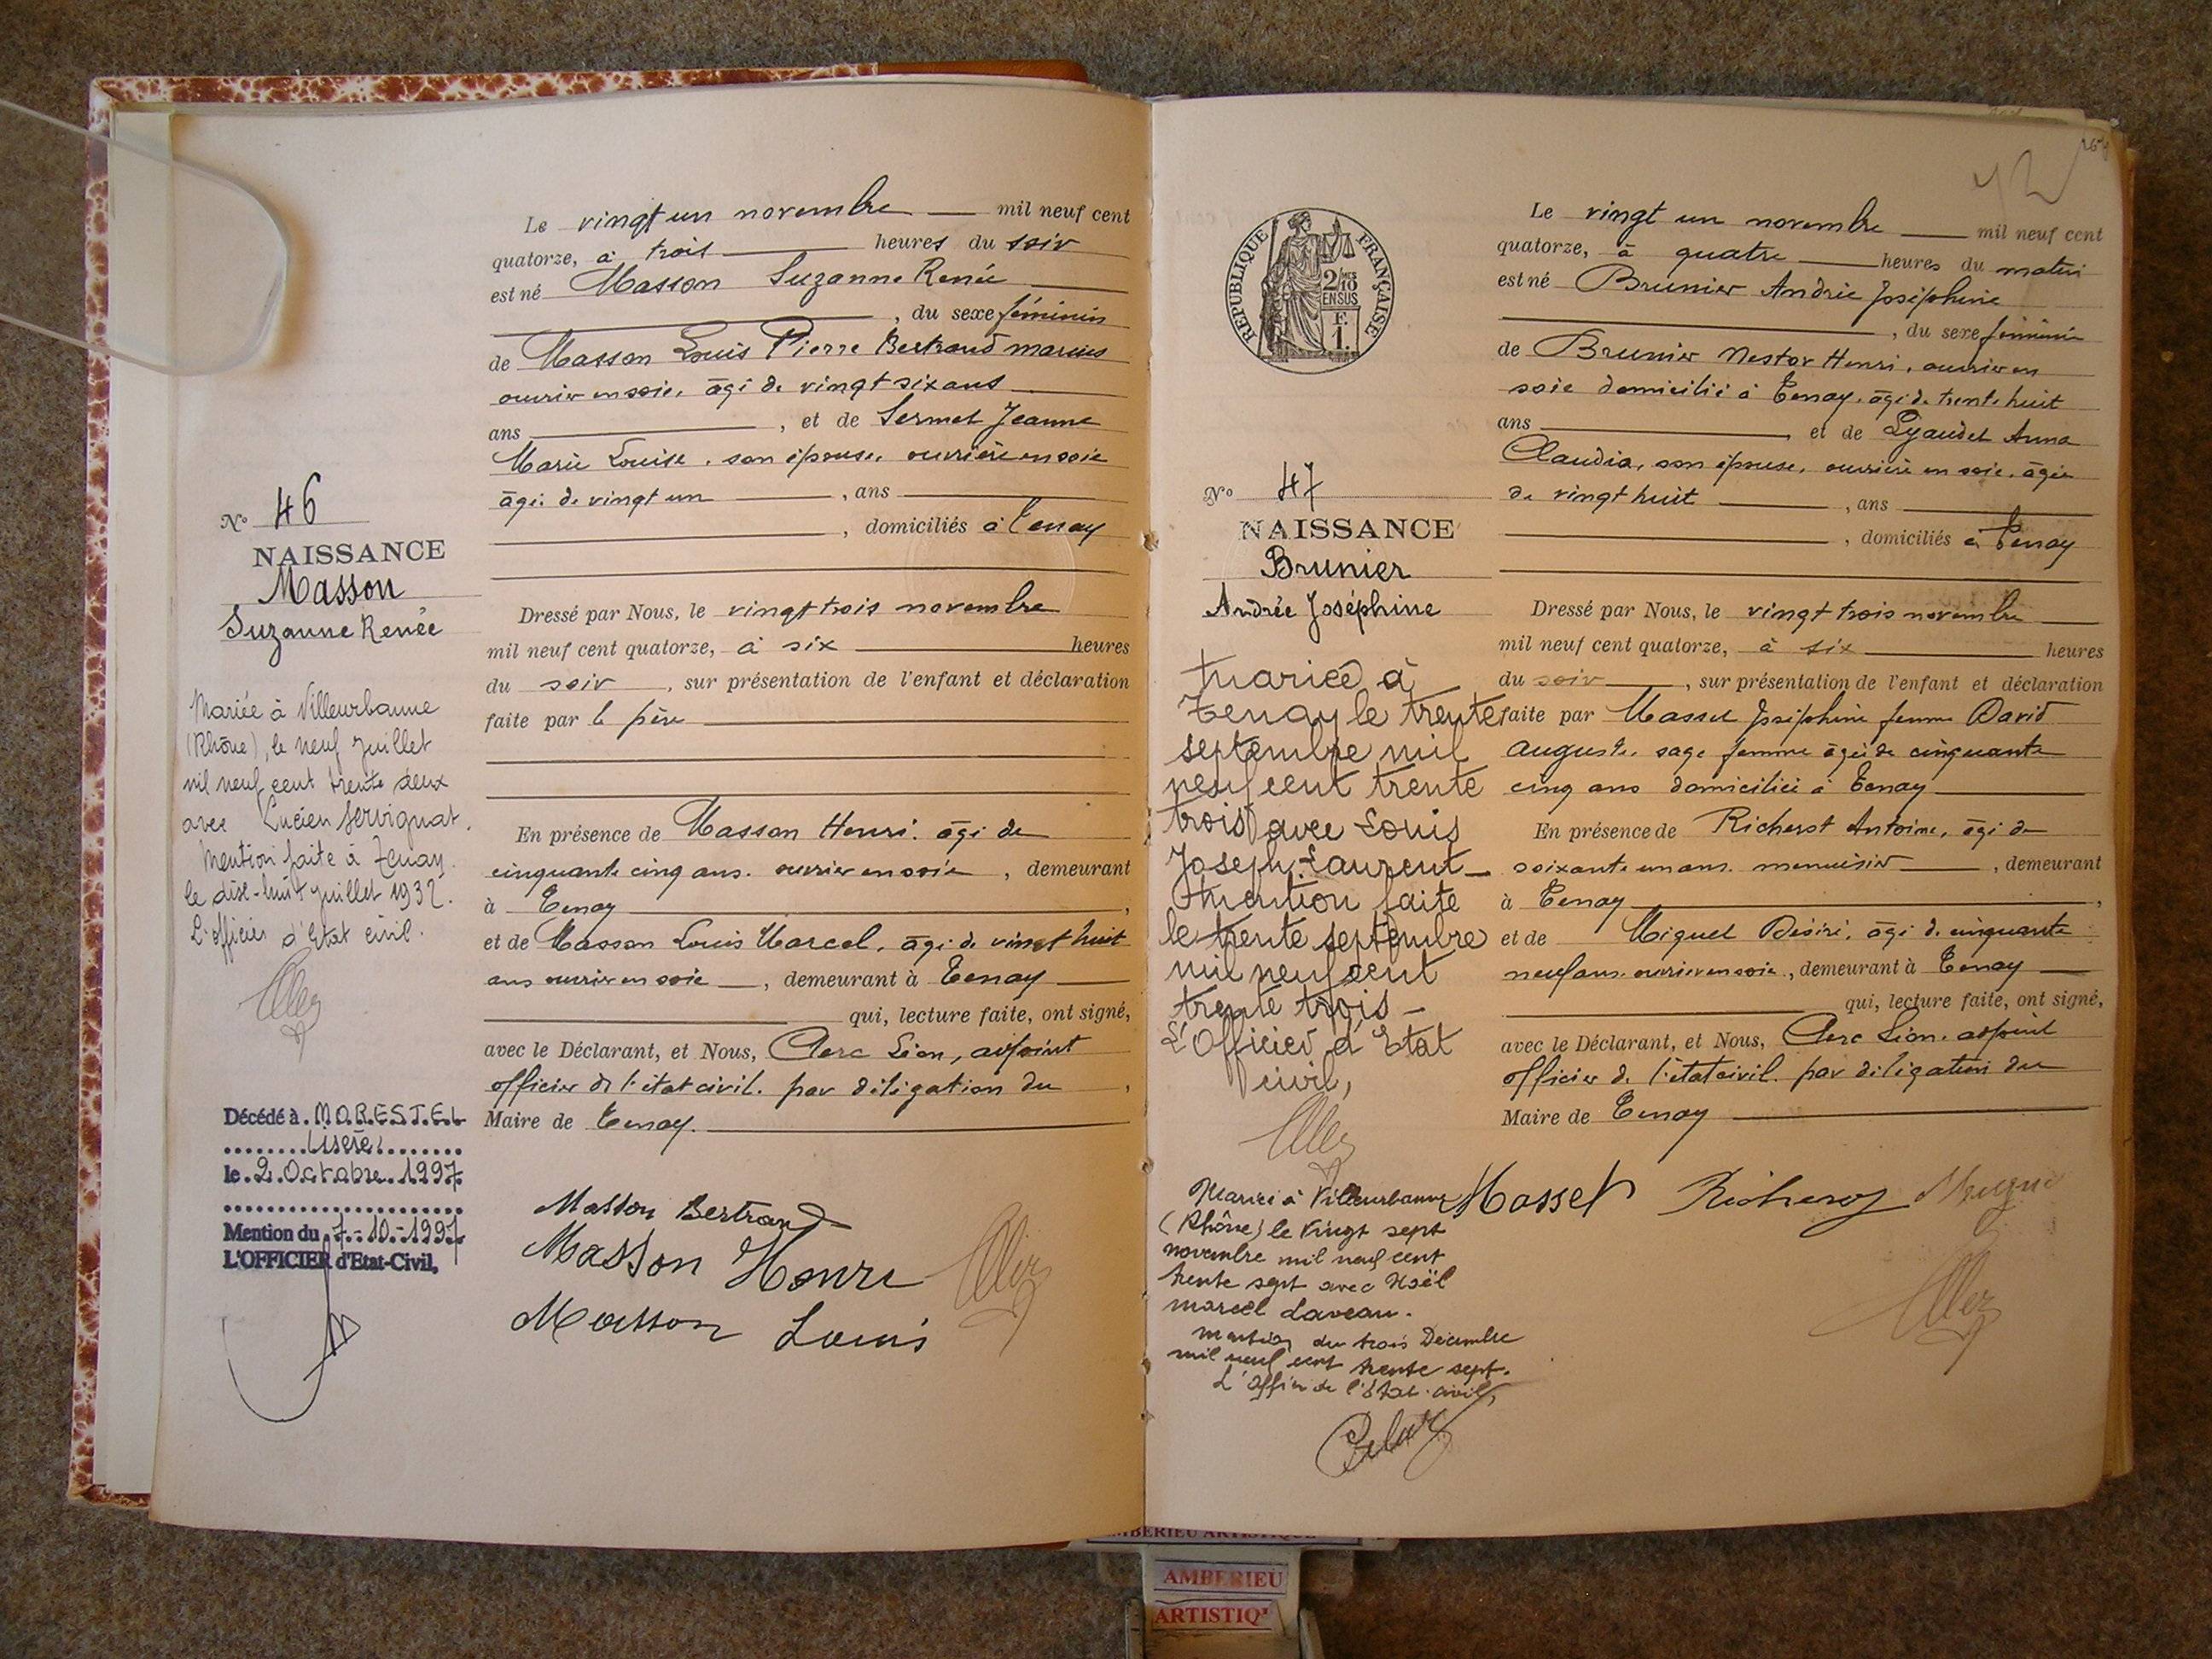 Le vingt un novembre mil neuf cent
quatorze, à trois heures du soir
est né Masson Suzanne Renée
, du sexe féminin
de Masson Louis Pierre Bertrand marius
ouvrier en soie, âgé de vingt six ans
ans , et de Sermet Jeanne
Marie Louise, son épouse, ouvrière en soie
âgée de vingt un , ans
, domiciliés à Tenay
Dressé par Nous, le vingt trois novembre
mil neuf cent quatorze, à six heures
du soir , sur présentation de l'enfant et déclaration
faite par le père
En présence de Masson Henri, âgé de
cinquante cinq ans, ouvrier en soie , demeurant
à Tenay ,
et de Masson Louis Marcel, âgé de vingt huit
ans ouvrier en soie , demeurant à Tenay
qui, lecture faite, ont signé,
avec le Déclarant, et Nous, Clerc Léon, adjoint
officier de l'état civil, par délégation du ,
Maire de Tenay.
Masson Bertrand
Masson Henri
Masson Louis
N° 46
NAISSANCE
Masson
Suzanne Renée
Mariée à Villeurbanne
(Rhône), le neuf juillet
mil neuf cent trente deux
avec Lucien Servignat.
Mention faite à Tenay
le dix-huit juillet 1932.
L'officier d'Etat civil.
Décédé à MORESTEL
(Isère)
le 2 Octobre 1997
Mention du 7-10-1997
L'OFFICIER d'Etat-Civil,
REPUBLIQUE FRANÇAISE
2/10
EN SUS
F.
1.
N° 47
NAISSANCE
Brunier
Andrée Joséphine
Mariée à
Tenay le trente
septembre mil
neuf cent trente
trois avec Louis
Joseph Laurent
Mention faite
le trente septembre
mil neuf cent
trente trois
L'Officier d'Etat
civil,
Mariée à Villeurbanne
(Rhône) le Vingt sept
novembre mil neuf cent
trente sept avec Noël
marcel Laveau.
mention du trois Décembre
mil neuf cent trente sept.
L'Officier de l'Etat-civil,
Le vingt un novembre mil neuf cent
quatorze, à quatre heures du matin
est né Brunier Andrée Joséphine
, du sexe féminin
de Brunier Nestor Henri, ouvrier en
soie domicilié à Tenay, âgé de trente huit
ans , et de Lyaudet Anna
Claudia, son épouse, ouvrière en soie, âgée
de vingt huit , ans
, domiciliés à Tenay
Dressé par Nous, le vingt trois novembre
mil neuf cent quatorze, à six heures
du soir , sur présentation de l'enfant et déclaration
faite par Massel Joséphine femme David
Auguste, sage femme âgée de cinquante
cinq ans domiciliée à Tenay
En présence de Richerot Antoine, âgé de
soixante un ans, menuisier , demeurant
à Tenay ,
et de Miguel Désiré, âgé de cinquante
neuf ans, ouvrier en soie , demeurant à Tenay
qui, lecture faite, ont signé,
avec le Déclarant, et Nous, Clerc Léon, adjoint
officier de l'état civil par délégation du
Maire de Tenay
Massel Richerot
AMBERIEU ARTISTIQUE
AMBERIEU
ARTISTIQ